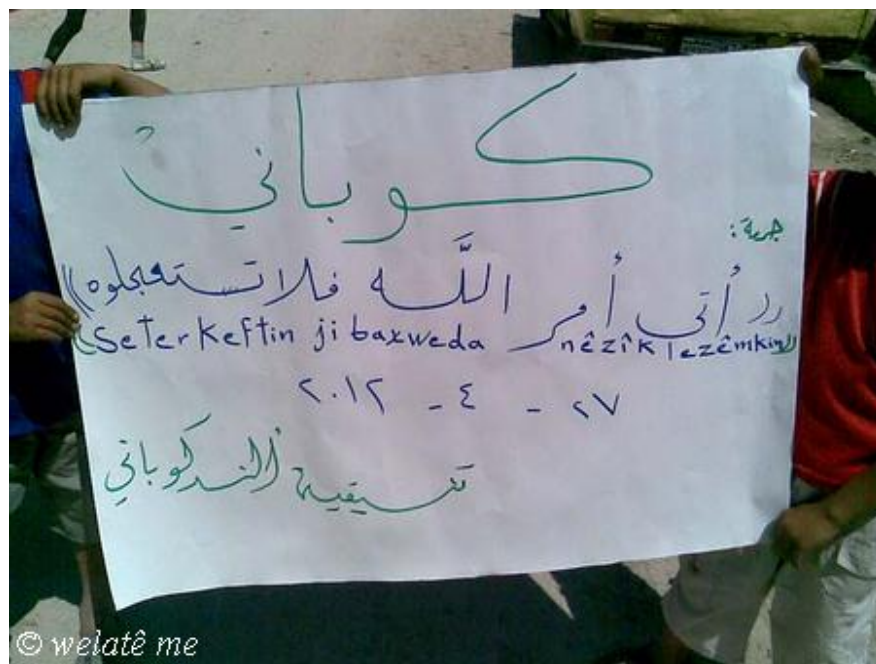 كوباني
جمعة:
(( أتى أمر الله فلا تستعجلوه ))
((Seterkeftin ji baxweda nêzîk lezêmkin))
٢٧ - ٤ - ٢٠١٢
تنسيقية ألند كوباني
© welatê me